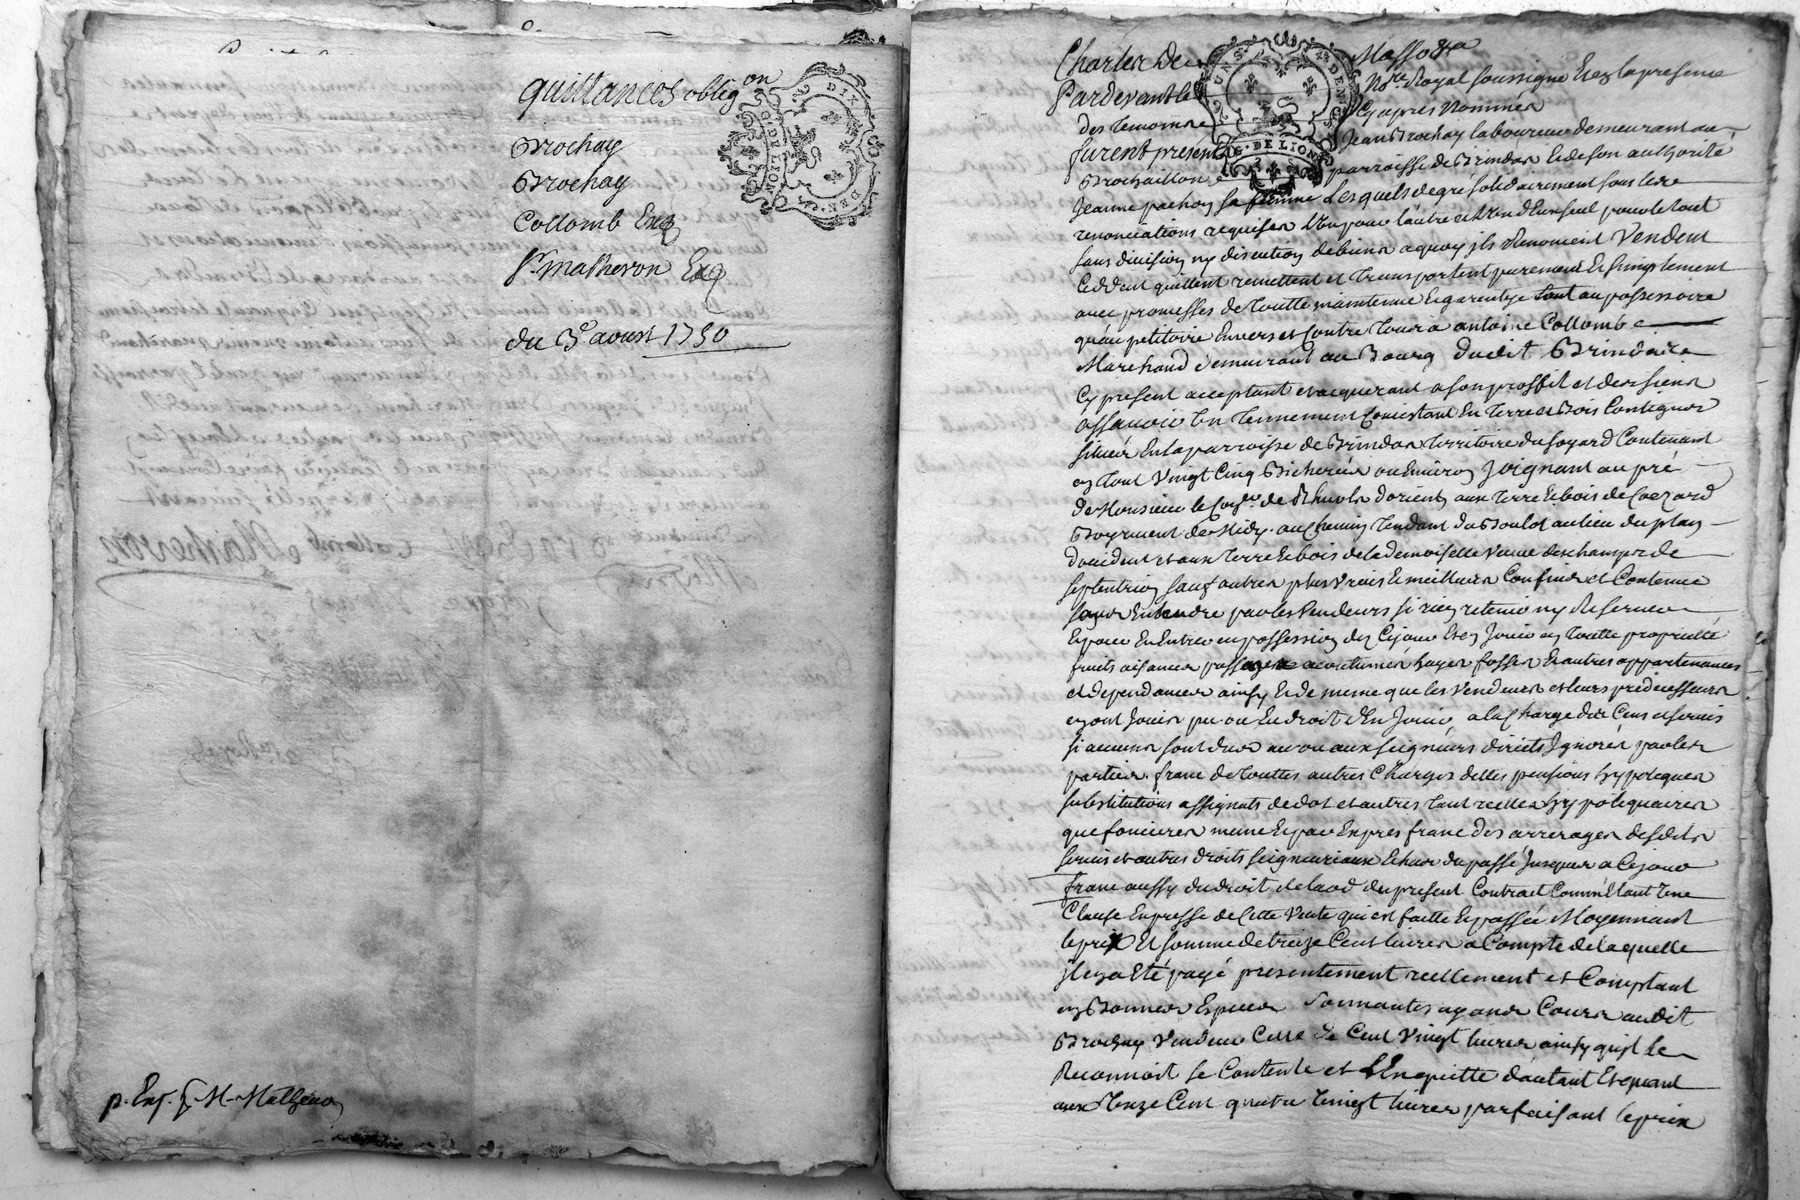 quittances oblig.on
Brochay
Brochay
Collomb Exp
Sr. Matheron Exp
du 3e aoust 1750
p. Exp. M. Matheron
DIX DEN.
G. DE LION
Charles De Masso &ra
Pardevant le No.re Royal soussigne Et en la presence
des temoins Cy apres Nommés
furent presents Jean Brochay laboureur demeurant au
Brochaillon parroisse de Brindas Et de son authorité
Jeanne pachoy sa femme Lesquels de gré solidairement sous les
renonciations requises L'un pour l'autre et L'un d'Eux seul pour le tout
sans division ny discution de biens a quoy ils Renoncent Vendent
Ceddent quittent remettent et Transportent purement Et simplement
avec promesses de Toutte maintenue Et garentye tant au possessoire
qu'au petitoire Envers et Contre Tous a antoine Collomb
Marchand demeurant au Bourg dudit Brindas
Cy present acceptant et acquerant a son proffit et des siens
assavoir Un Tennement Consistant En Terre et Bois Contigus
situés En la parroisse de Brindas Territoire du soyard Contenant
en tout Vingt Cinq Bicherées ou Environ Joignant au pré
de Monsieur le d'orient aux Terre Et bois de
de Midy au Chemin Tendant du Boulot au lieu du plan
d'occident et aux Terre Et bois de la demoiselle Veuve deschamps de
septentrion sauf autres plus vrais Et meilleurs Confins et Contenue
sans En Rendre par les Vendeurs si rien retenir ny Reserver
Et pour En Entrer en possession des Cejour Et en Jouir en toutte proprieté
fruits aisances passages accoutumés hayes fossés Et autres appartenances
et dependances ainsy Et de meme que les Vendeurs et leurs predecesseurs
en ont Jouis pu ou Eu droit d'En Jouir a la Charge des Cens et servis
si aucuns sont dus au ou aux seigneurs directs Ignorés par les
parties franc de Touttes autres Charges dettes pensions hypoteques
substitutions assignats de dot et autres tant reelles hypotequaires
que foncieres meme Et par Exprés franc des arrerages desdits
servis et autres droits seigneuriaux Echus du passé Jusques a Cejour
franc aussy du droit de laod du present Contract Comme Etant Une
Clause Expresse de Cette Vente qui est faitte Et passée Moyennant
le prix Et somme de treize Cent livres a Compte de laquelle
Il en a Eté payé presentement reellement et Comptant
en Bonnes Especes sonnantes ayant Cours audit
Brochay Vendeur Celle de Cent Vingt livres ainsy qu'il le
Reconnoit se Contente et L'En quitte d'autant Et quant
aux Onze Cent quatre Vingt livres parfaisant le prix